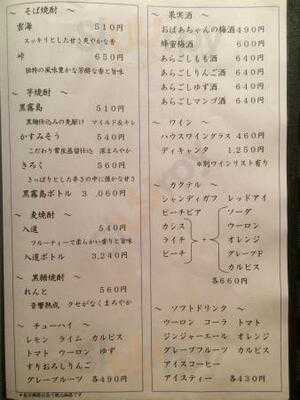 ～ そば焼酎 ～
雲海 510円
スッキリとした甘さ爽やかな香
峠 650円
独特の風味豊かな芳醇な香と旨味
～ 芋焼酎 ～
黒霧島 510円
黒麹仕込みの先駆け マイルド&キレ
かすみそう 540円
こだわり常圧蒸留仕込 深まろやか
きろく 560円
きっぱりとした辛さの中に僅かな甘さ
黒霧島ボトル 3,060円
～ 麦焼酎 ～
八道 540円
フルーティーで柔らかい香りと旨味
八道ボトル 3,240円
～ 黒糖焼酎 ～
れんと 560円
音響熟成 クセがなくまろやか
～ チューハイ ～
レモン ライム カルピス
トマト ウーロン ゆず
すりおろしりんご
グレープフルーツ 各490円
～ 果実酒 ～
おばあちゃんの梅酒 490円
蜂蜜梅酒 600円
あらごしもも酒 640円
あらごしりんご酒 640円
あらごしゆず酒 640円
あらごしマンゴ酒 640円
～ ワイン ～
ハウスワイングラス 460円
ディキャンタ 1,250円
*別ワインリスト有り
～ カクテル ～
シャンディガフ レッドアイ
ピーチピア
カシス
ライチ
ピーチ
+
ソーダ
ウーロン
オレンジ
グレープF
カルピス
各660円
～ ソフトドリンク ～
ウーロン コーラ トマト
ジンジャーエール オレンジ
グレープフルーツ カルピス
アイスコーヒー
アイスティー 各430円